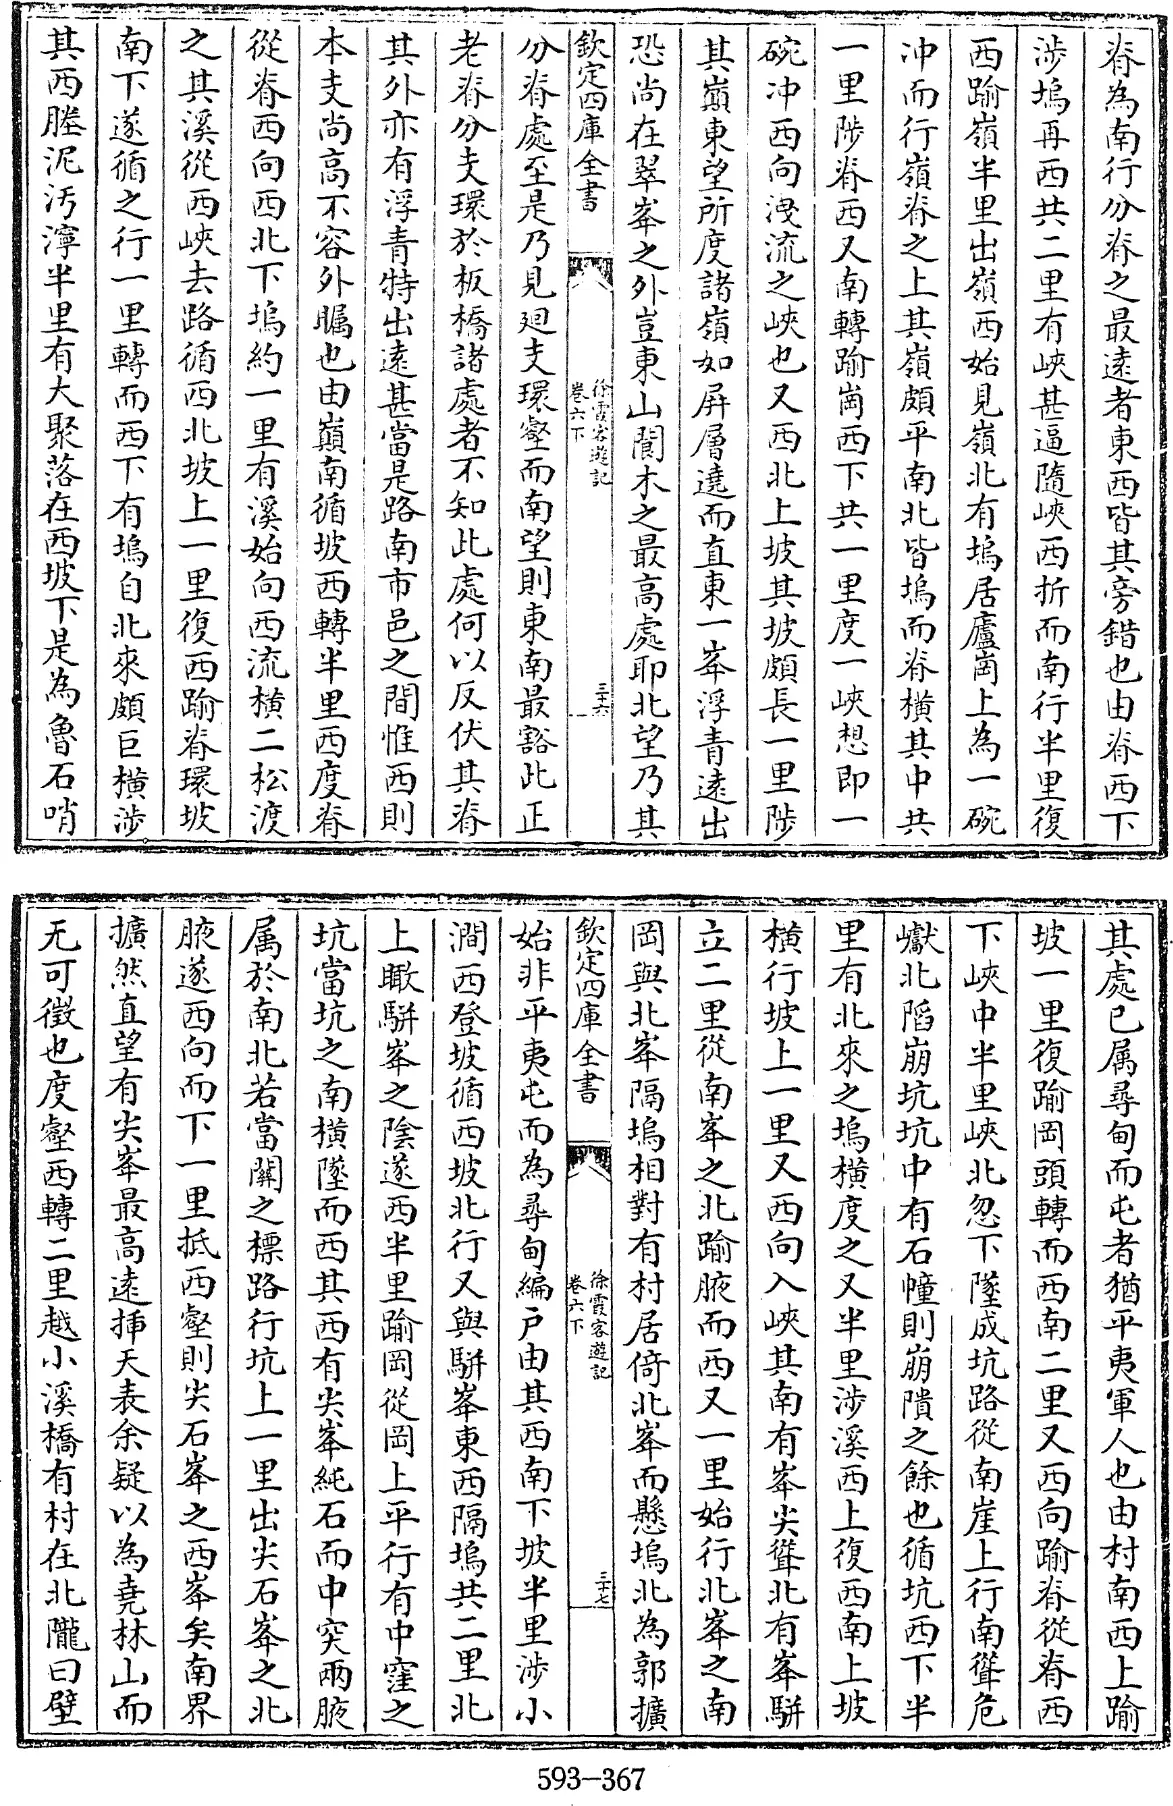 脊為南行分脊之最遠者東西皆其旁錯也由脊西下
涉塢再西共二里有峽甚逼隨峽西折而南行半里復
西踰嶺半里出嶺西始見嶺北有塢居廬崗上為一碗
冲而行嶺脊之上其嶺頗平南北皆塢而脊橫其中共
一里陟脊西又南轉踰崗西下共一里度一峽想即一
碗冲西向洩流之峽也又西北上坡其坡頗長一里陟
其巔東望所度諸嶺如屏層遶而直東一峯浮青遠出
恐尚在翠峯之外豈東山閬木之最高處耶北望乃其
欽定四庫全書
徐霞客遊記
卷六下
三十六
分脊處至是乃見迴支環壑而南望則東南最豁此正
老脊分支環於板橋諸處者不知此處何以反伏其脊
其外亦有浮青特出遠甚當是路南市邑之間惟西則
本支尚高不容外矚也由巔南循坡西轉半里西度脊
從脊西向西北下塢約一里有溪始向西流橫二松渡
之其溪從西峽去路循西北坡上一里復西踰脊環坡
南下遂循之行一里轉而西下有塢自北來頗巨橫涉
其西塍泥汚濘半里有大聚落在西坡下是為魯石哨
其處已属尋甸而屯者猶平夷軍人也由村南西上踰
坡一里復踰岡頭轉而西南二里又西向踰脊從脊西
下峽中半里峽北忽下墜成坑路從南崖上行南聳危
巘北䧟崩坑坑中有石幢則崩隤之餘也循坑西下半
里有北來之塢橫度之又半里涉溪西上復西南上坡
橫行坡上一里又西向入峽其南有峯尖聳北有峯駢
立二里從南峯之北踰腋而西又一里始行北峯之南
岡與北峯隔塢相對有村居倚北峯而懸塢北為郭擴
欽定四庫全書
徐霞客遊記
卷六下
三十七
始非平夷屯而為尋甸編戶由其西南下坡半里涉小
澗西登坡循西坡北行又與駢峯東西隔塢共二里北
上瞰駢峯之陰遂西半里踰岡從岡上平行有中窪之
坑當坑之南橫墜而西其西有尖峯純石而中突兩腋
属於南北若當關之標路行坑上一里出尖石峯之北
腋遂西向而下一里抵西壑則尖石峯之西峯矣南界
擴然直望有尖峯最高遠揷天表余疑以為堯林山而
无可徵也度壑西轉二里越小溪橋有村在北隴曰壁
593-367